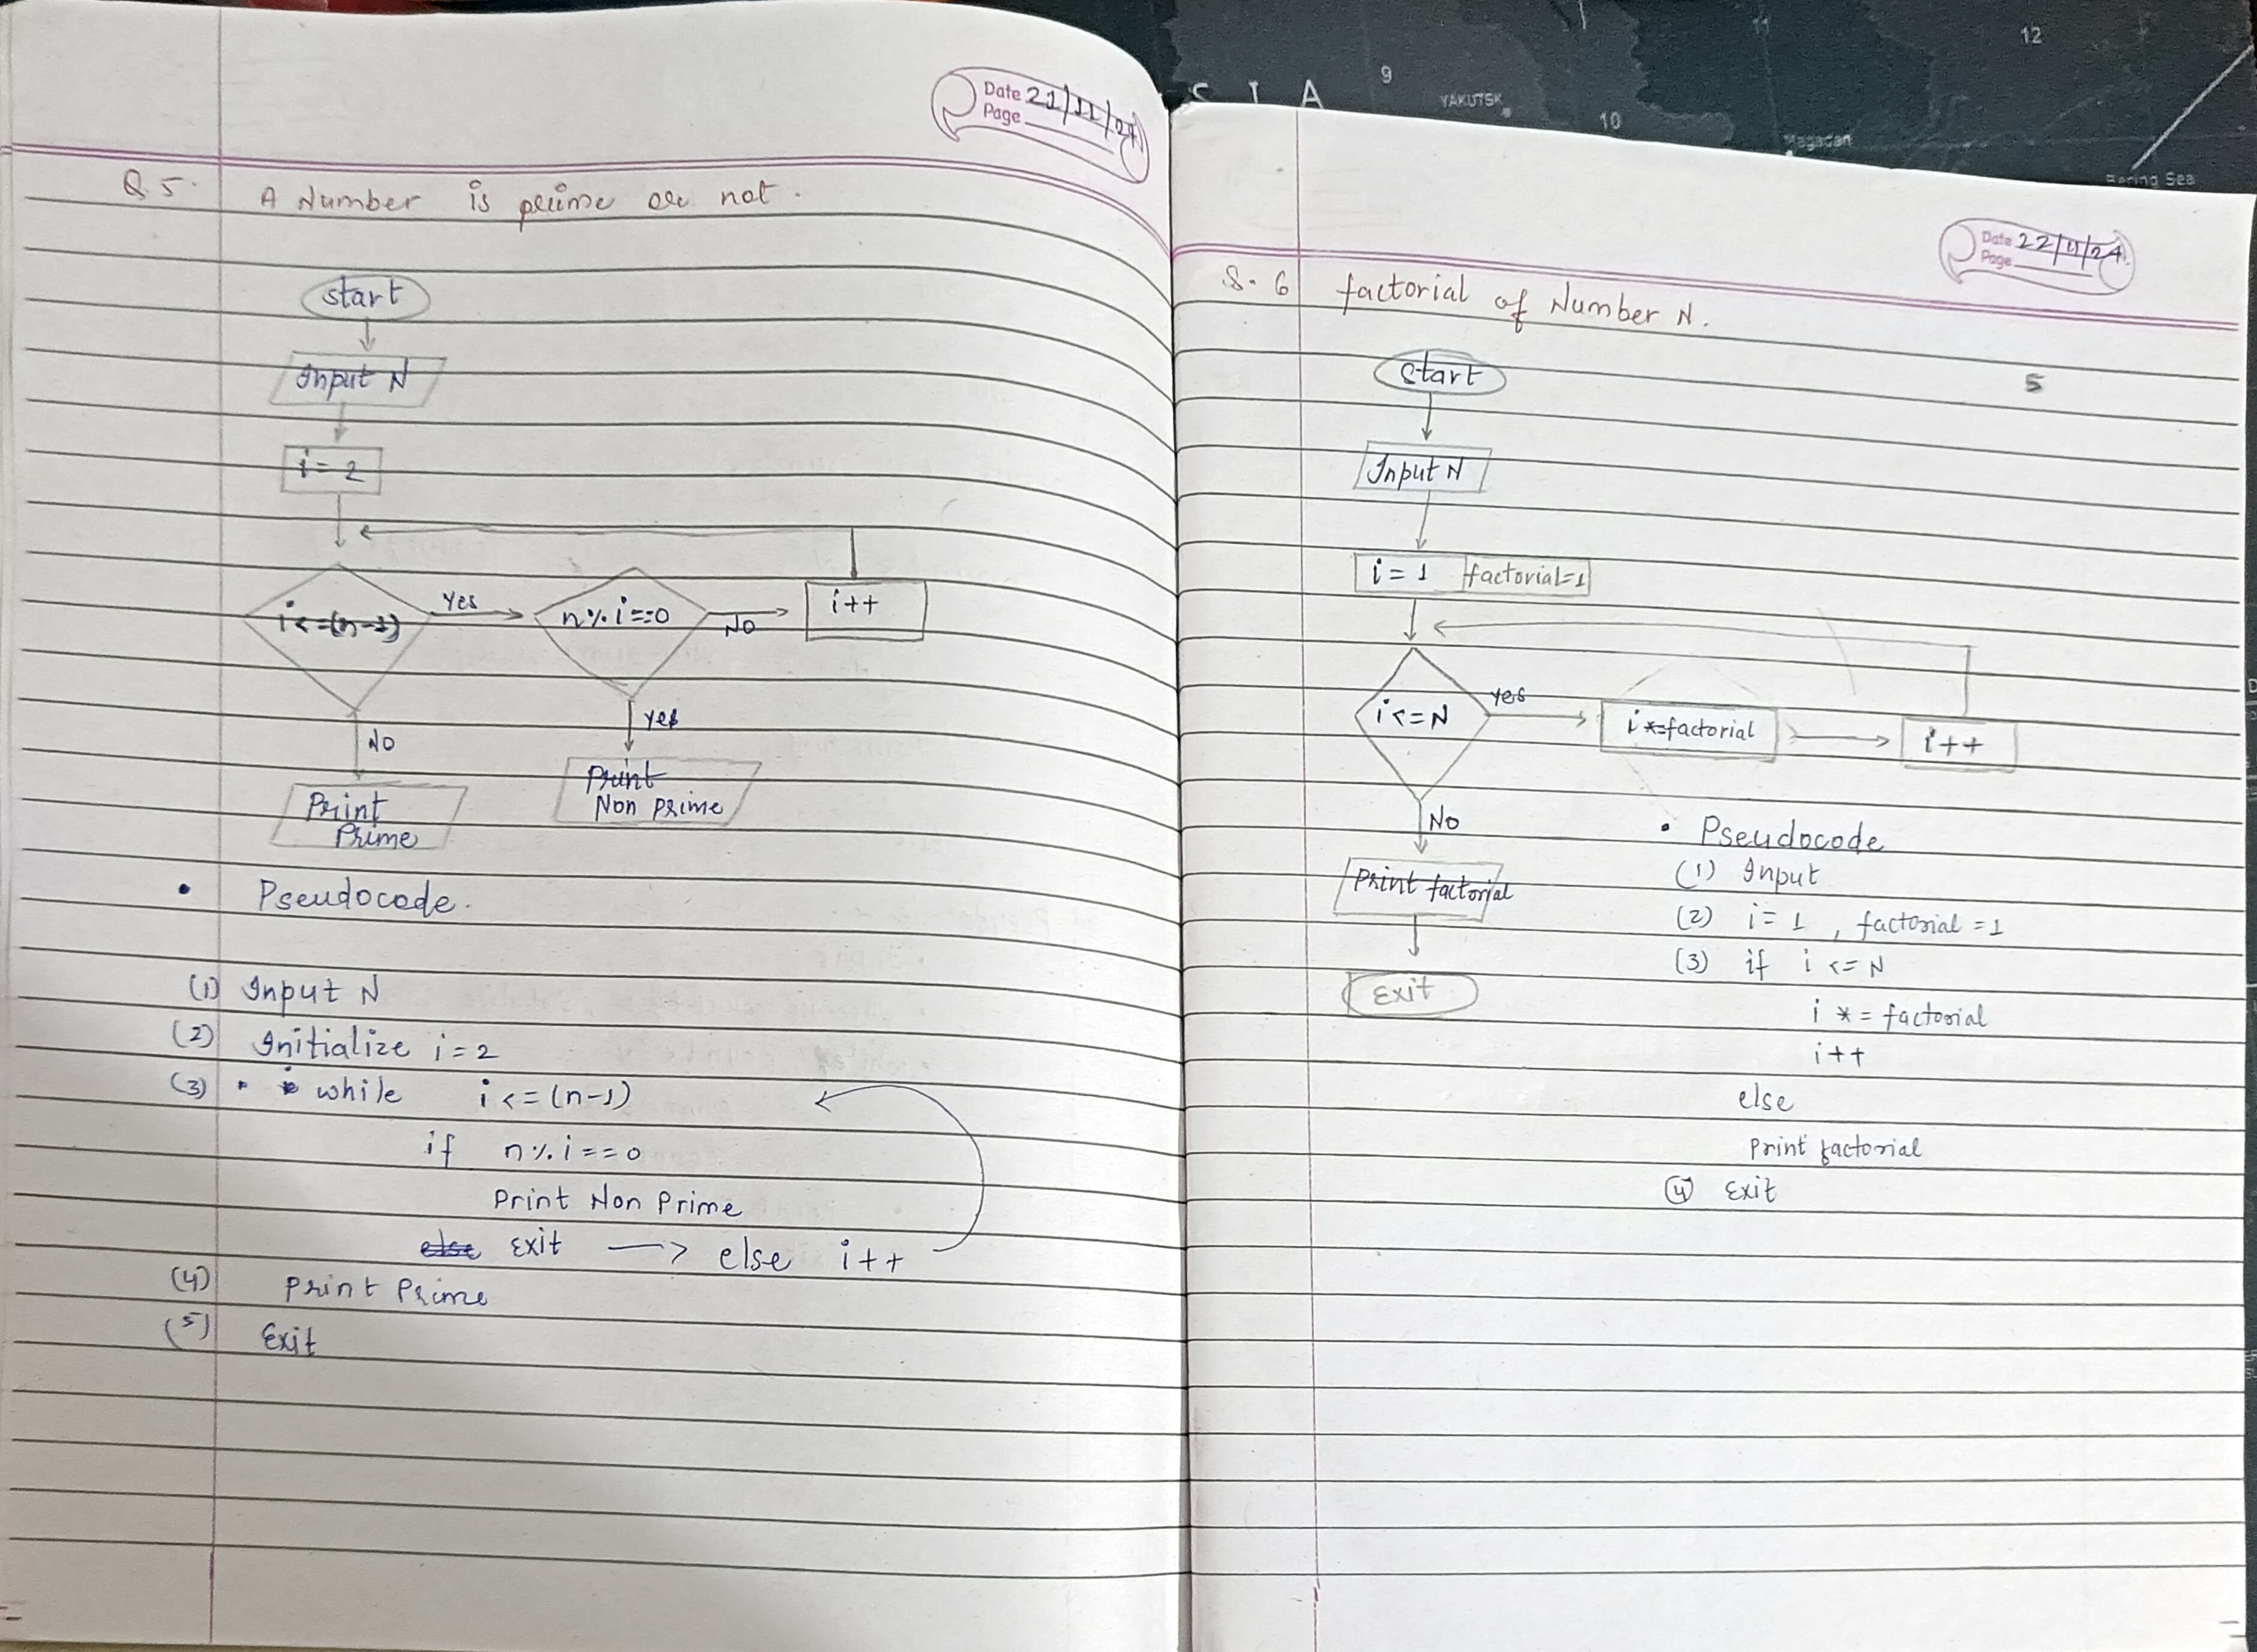 Date 21/11/24
Page
Q 5. A Number is prime or not.
start
Input N
i = 2
i <= (n-1)
Yes
n % i == 0
NO
i++
NO
yes
Print
Prime
Print
Non prime
• Pseudocode.
(1) Input N
(2) Initialize i = 2
(3) • while i <= (n-1)
if n % i == 0
Print Non Prime
else Exit → else i++
(4) Print Prime
(5) Exit
S I A
9
YAKUTSK
10
11
12
Magadan
Bering Sea
Date 22/11/24
Page
Q. 6 factorial of Number N.
5
Start
Input N
i = 1 factorial=1
i <= N
yes
i *= factorial
i++
NO
Print factorial
Exit
• Pseudocode
(1) Input
(2) i = 1 , factorial = 1
(3) if i <= N
i *= factorial
i++
else
Print factorial
(4) Exit